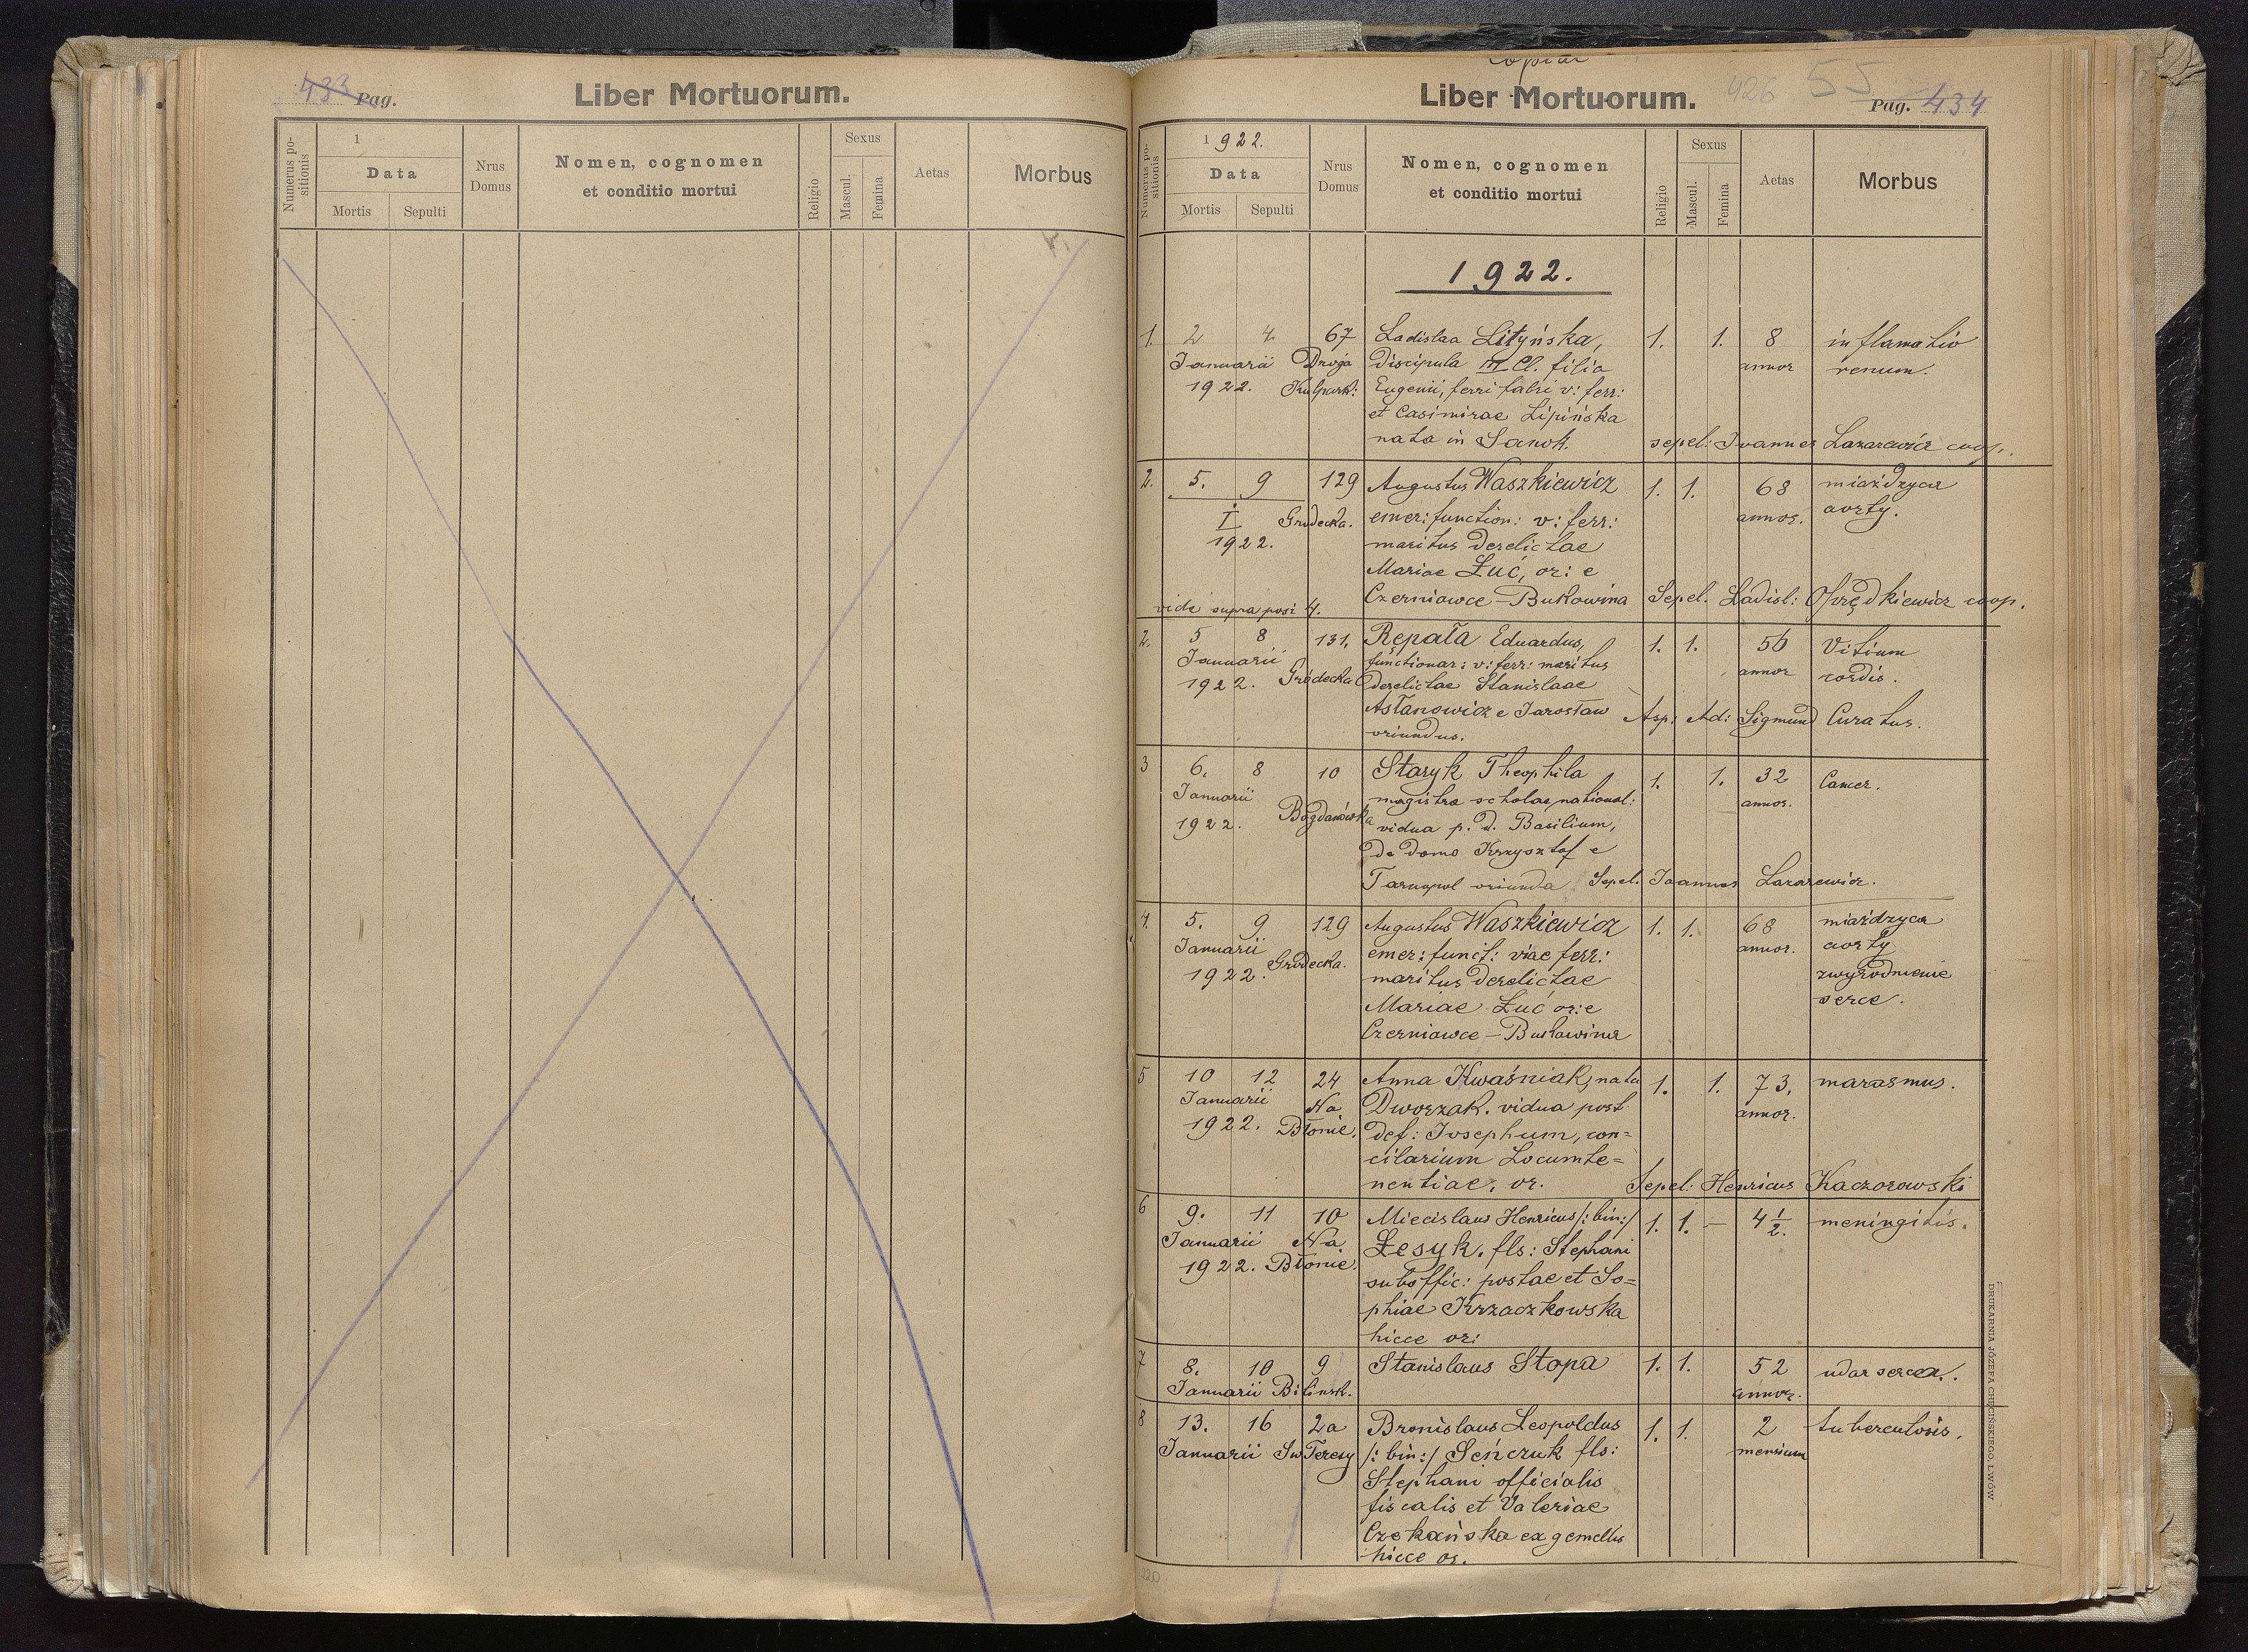 433 Pag.
Liber Mortuorum.
Numerus po-
sitionis
1
Data
Mortis Sepulti
Nrus
Domus
Nomen, cognomen
et conditio mortui
Religio
Sexus
Mascul.
Femina
Aetas
Morbus
Liber Mortuorum.
426 55
Pag. 434
Numerus po-
sitionis
1922.
Data
Mortis Sepulti
Nrus
Domus
Nomen, cognomen
et conditio mortui
Religio
Sexus
Mascul.
Femina
Aetas
Morbus
1922.
1. 2 4. 67 Ladislaa Lityńska, 1. 1. 8 inflamatio
Januarii Droga Discipula III Cl. filia annor renum.
1922. Kulpark: Eugenii, ferri fabri v: ferr:
et Casimirae Lipińska
nata in Sanok. sepel: Joannes Lazarewicz coop.
2. 5. 9 129 Augustus Waszkiewicz 1. 1. 68 miażdzyca
I Grodecka. emer: function: v: ferr: annor. aorty.
1922. maritus derelictae
Mariae Łuć, or: e
vide supra posi 4. Czerniowce - Bukowina Sepel. Ladisl: coop.
2. 5 8 131. Rępała Eduardus, 1. 1. 56 Vitium
Januarii functionar: v: ferr: maritus annor cordis.
1922. Gródecka derelictae Stanislaae
Asłanowicz e Jarosław Asp: Ad: Sigmund Curatus.
oriundus.
3 6. 8 10 Staryk Theophila 1. 1. 32 Cancer.
Januarii magistra scholae national: annor.
1922. Bogdanówka vidua p. d. Basilium,
de domo Krzysztof e
Tarnopol oriunda Sepel. Joannes Lazarewicz.
4. 5. 9 129 Augustus Waszkiewicz 1. 1. 68 miażdzyca
Januarii emer: funct: viae ferr: annor. aorty
1922. Grodecka. maritus derelictae zwyrodnienie
Mariae Łuć or: e serce.
Czerniowce - Bukowina
5 10 12 24 Anna Kwaśniak, nata 1. 1. 73. marasmus.
Januarii Na Dworzak. vidua post annor.
1922. Błonie. def: Josephum, con=
cilarium Locumte=
nentiae, or. Sepel: Henricus Kaczorowski
6 9. 11 10 Miecislaus Henricus /:bin:/ 1. 1. - 4 1/2. meningitis.
Januarii Na Łesyk. fls: Stephani
1922. Błonie. suboffic: postae et So=
phiae Krzaczkowska
hicce or:
7 8. 10 9 Stanislaus Stopa 1. 1. 52 udar serca.
Januarii Bilinsk. annor.
8 13. 16 2a Bronislaus Leopoldus 1. 1. 2 tuberculosis.
Januarii Sw Teresy /: bin:/ Seńczuk fls: mensium
Stephani officialis
fiscalis et Valeriae
Czekańska ex gemellis
hicce or.
DRUKARNIA JÓZEFA CHĘCIŃSKIEGO, LWÓW